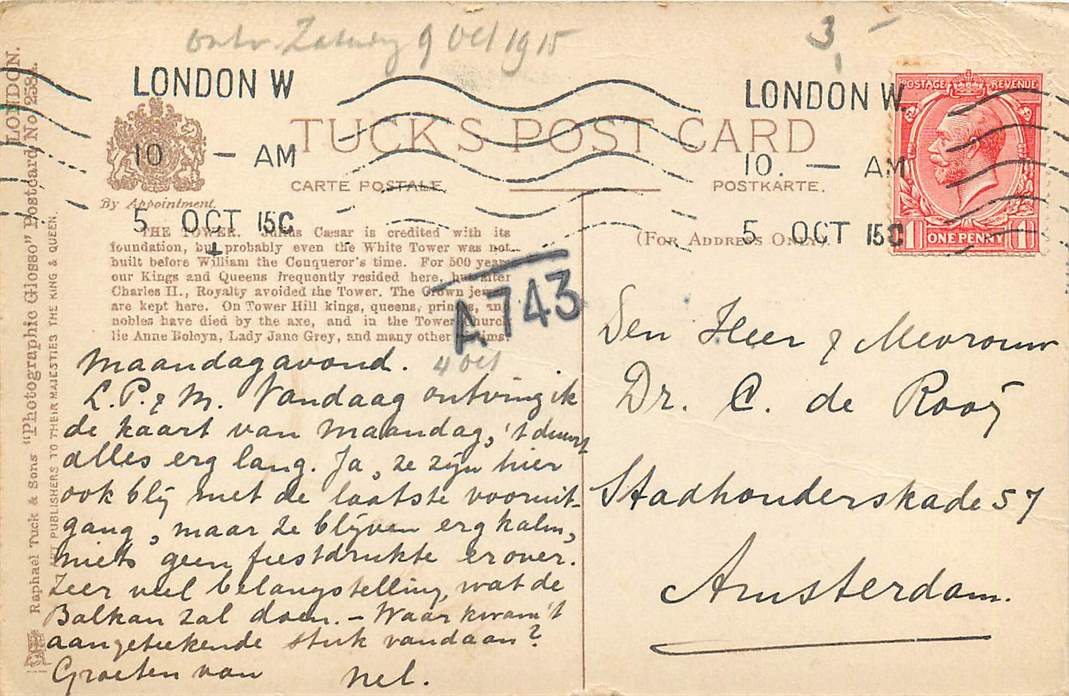 Ontv. Zaterdag 9 Oct 1915
3,-
LONDON W
10 — AM
5 OCT 15C
LONDON W.
10. — AM
5 OCT 15C
POSTAGE REVENUE
ONE PENNY
1 1
TUCK'S POST CARD
CARTE POSTALE
POSTKARTE.
By Appointment.
(For Address Only)
THE TOWER. Julius Cæsar is credited with its
foundation, but probably even the White Tower was not
built before William the Conqueror's time. For 500 years
our Kings and Queens frequently resided here, but after
Charles II., Royalty avoided the Tower. The Crown jewels
are kept here. On Tower Hill kings, queens, princes, and
nobles have died by the axe, and in the Tower Church
lie Anne Boleyn, Lady Jane Grey, and many other victims.
A 743
4 Oct
Maandagavond.
L.P. & M. Vandaag ontving ik
de kaart van Maandag, 't duurt
alles erg lang. Ja, ze zijn hier
ook blij met de laatste vooruit-
gang, maar ze blijven erg kalm,
niets geen feestdrukte erover.
Zeer veel belangstelling, wat de
Balkan zal doen. – Waar kwam 't
aangeteekende stuk vandaan?
Groeten van Nel.
Den Heer & Mevrouw
Dr. C. de Rooij
Stadhouderskade 57
Amsterdam.
LONDON.
Raphael Tuck & Sons "Photographic Glosso" Postcard No.
ART PUBLISHERS TO THEIR MAJESTIES THE KING & QUEEN.